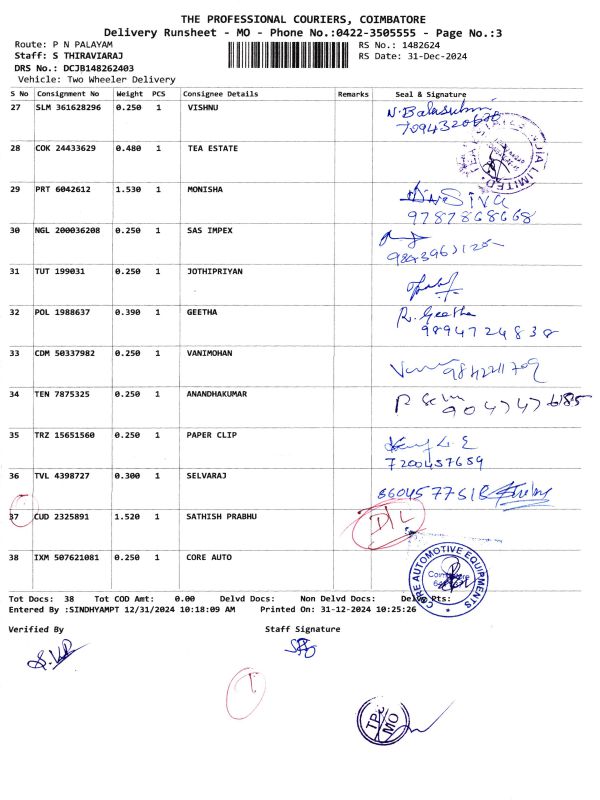 THE PROFESSIONAL COURIERS, COIMBATORE
Delivery Runsheet - MO - Phone No.:0422-3505555 - Page No.:3
Route: P N PALAYAM RS No.: 1482624
Staff: S THIRAVIARAJ RS Date: 31-Dec-2024
DRS No.: DCJB148262403
Vehicle: Two Wheeler Delivery
S No Consignment No Weight PCS Consignee Details Remarks Seal & Signature
27 SLM 361628296 0.250 1 VISHNU
7094320630
28 COK 24433629 0.480 1 TEA ESTATE
LIMITED
29 PRT 6042612 1.530 1 MONISHA SIVA
9787868668
30 NGL 200036208 0.250 1 SAS IMPEX
31 TUT 199031 0.250 1 JOTHIPRIYAN
32 POL 1988637 0.390 1 GEETHA R. Geetha
9894724838
33 CDM 50337982 0.250 1 VANIMOHAN
34 TEN 7875325 0.250 1 ANANDHAKUMAR
35 TRZ 15651560 0.250 1 PAPER CLIP
7200457659
36 TVL 4398727 0.300 1 SELVARAJ
37 CUD 2325891 1.520 1 SATHISH PRABHU D/L
38 IXM 507621081 0.250 1 CORE AUTO
CORE AUTOMOTIVE EQUIPMENTS
Coimbatore
Tot Docs: 38 Tot COD Amt: 0.00 Delvd Docs: Non Delvd Docs: Delvd Pts:
Entered By :SINDHYAMPT 12/31/2024 10:18:09 AM Printed On: 31-12-2024 10:25:26
Verified By Staff Signature
TPC
MO